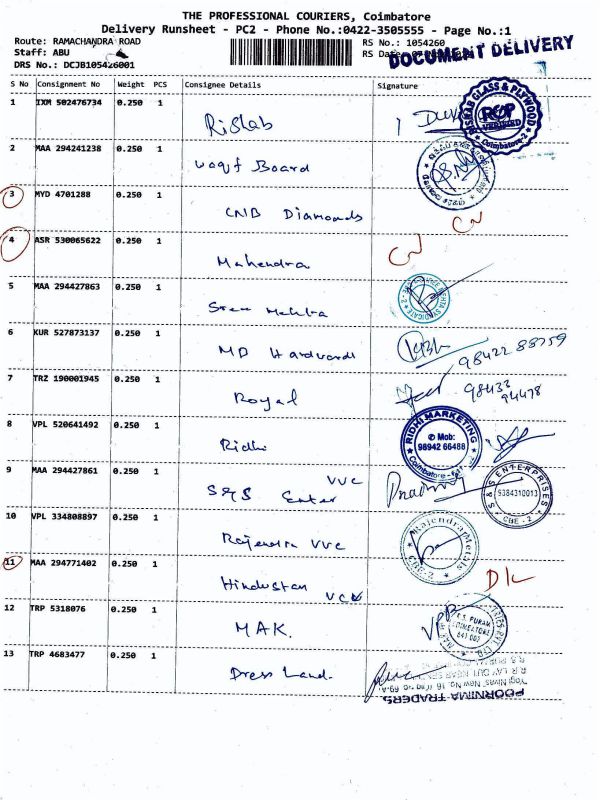 THE PROFESSIONAL COURIERS, Coimbatore
Delivery Runsheet - PC2 - Phone No.:0422-3505555 - Page No.:1
Route: RAMACHANDRA ROAD
Staff: ABU
DRS No.: DCJB105426001
RS No.: 1054260
RS Date:
DOCUMENT DELIVERY
S No Consignment No Weight PCS Consignee Details Signature
1 IXM 502476734 0.250 1 Rislab
GLASS & PLYWOOD
VERIFIED
Coimbatore-2
2 MAA 294241238 0.250 1 waqf Board
3 MYD 4701288 0.250 1 CNB Diamonds CN
4 ASR 530065622 0.250 1 Mahendra CN
5 MAA 294427863 0.250 1 Sree Mehta
6 KUR 527873137 0.250 1 MD Hardward 98422 88759
7 TRZ 190001945 0.250 1 Royal 98433 94478
8 VPL 520641492 0.250 1 Ridhi
RIDHI MARKETING
✆ Mob:
98942 66488
Coimbatore
9 MAA 294427861 0.250 1 S&S Enter VVC
S & S ENTERPRISES
9384310013
CBE - 2
10 VPL 334808897 0.250 1 Rajendra VVC
Rajendra Metals
CBE-2
11 MAA 294771402 0.250 1 Hindustan VCK DL
12 TRP 5318076 0.250 1 MAK.
R.S. PURAM
COIMBATORE
641 002
13 TRP 4683477 0.250 1 Dress Land.
POORNIMA TRADERS